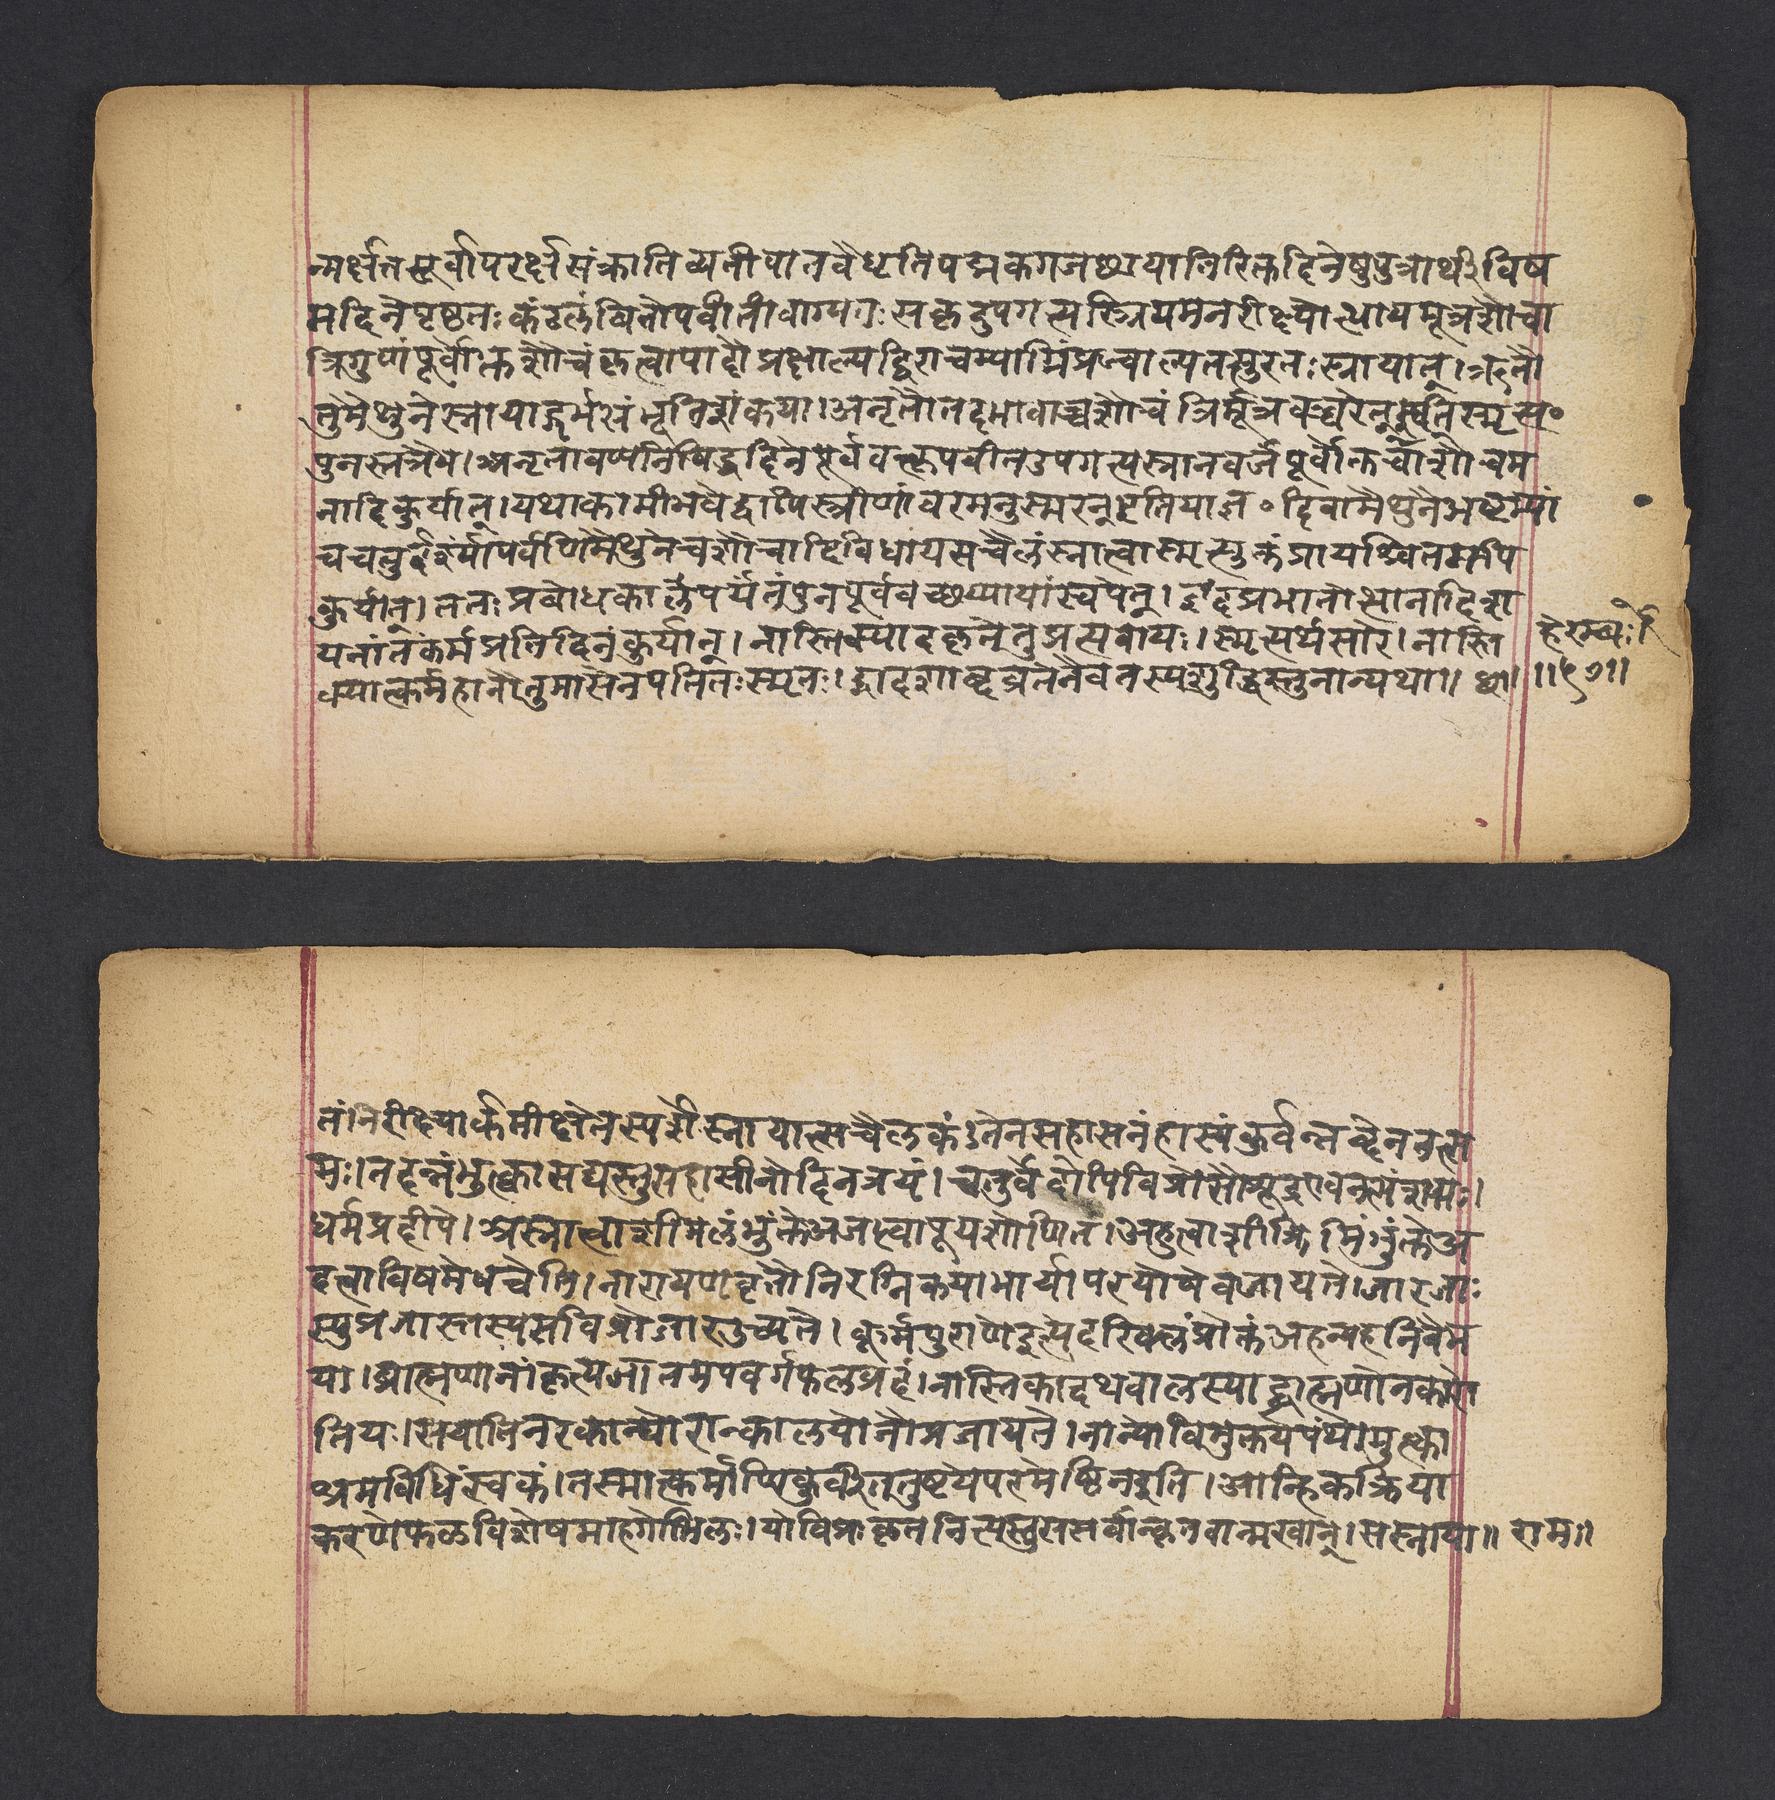 न्मर्क्षतत्पूर्वापरर्क्षसंक्रातिव्यतीपातवैधृतिपद्मकगजछायातिरिक्तदिनेषुपुत्रार्थीविष
मदिनेपृष्ठतः कंठलंवितोपवीतीवाग्यतः सकृदुपगत्यस्त्रियमनरीक्ष्योत्थायमूत्रशौचा
त्रिगुणंपूर्वोक्तशौचंकृत्वापादौप्रक्षाल्यद्विराचम्याग्निंप्रज्वाल्यतत्पुरतःस्नायात्। ऋतौ
तुमैथुनेस्नायाद्गर्भसंभूतिशंकया। अनृतौतदभावाच्चशौचंत्रिर्मूत्रवच्चरेत् स्मृत्यं॰
पुनस्तत्रैव। अनृतावप्यनिषिद्धदिनेपूर्ववत्कृपवीतउपगत्यस्नानवर्जंपूर्वोक्तशौचम
नादिकुर्यात्। यथाकामीभवेद्वापिस्त्रीणांवरमनुस्मरन् इतियाज्ञ॰ दिवामैथुनेअष्टम्यां
चचतुर्दश्यांपर्वणिमैथुनेचशौचादिविधायसचैलंस्नात्वास्मत्युक्तंप्रायश्चितमपि
कुर्यात्। ततः प्रबोधकालपर्यंतंपुनपूर्ववच्छय्यायांस्वपेत्। इदंप्रभातोत्थानादिशा
यनांतंकर्मप्रतिदिनंकुर्यात्। नास्तिक्यादकृतेतुप्रत्यवायः। स्मृत्यर्थसारे। नास्ति हेरम्बः।
क्यात्कर्महानौतुमासेनपतितःस्मृतः। द्वादशाब्दव्रतेनैवतस्यशुद्धिस्तुनान्यथा॥ छ॥ ॥५७॥
तंनिरीक्ष्यार्कमीक्षेतस्पर्शेस्नायात्सचैलकं। तेनसहासनंहास्यंकुर्वन्नब्देनतत्स
मः। तदन्नंभुक्त्वासद्यस्तुसहासीनोदिनत्रयं। चतुर्वेदोपिविप्रोसौशूद्रएवनसंशयः।
धर्मप्रदीपे। अस्नात्वाशीमलंभुंक्तेअजप्त्वापूयशोणितं। अहुत्वाशीकृमिंभुंक्तेअ
दत्वाविषमेवचेति। नारायणवृत्तौनिरग्निकया। भार्यापरयोषेवजायते। जारजाः
स्युप्रजास्तस्यसविप्रोजारउच्यते। कूर्मपुराणेइत्येदखिलंप्रोक्तंअहन्यहनिवैम
या। ब्राह्मणानांकृत्यजातमपवर्गफलप्रदं। नास्तिकादथवालस्याद्ब्राह्मणोनकरो
तियः। सयातिनरकान्घोरान्कालयोनौप्रजायते। नान्योविमुक्तयेपंथामुक्त्वा
श्रमविधिंस्वकं। तस्मात्कर्माणिकुर्वीततुष्टयेपरमेष्ठिनइति। आन्हिकक्रिया
करणेफळविशेषमाहगोभिलः। योविप्रःकृतनित्यस्तुससर्वान्कृतवान्मखान्। सस्नाया॥ राम॥